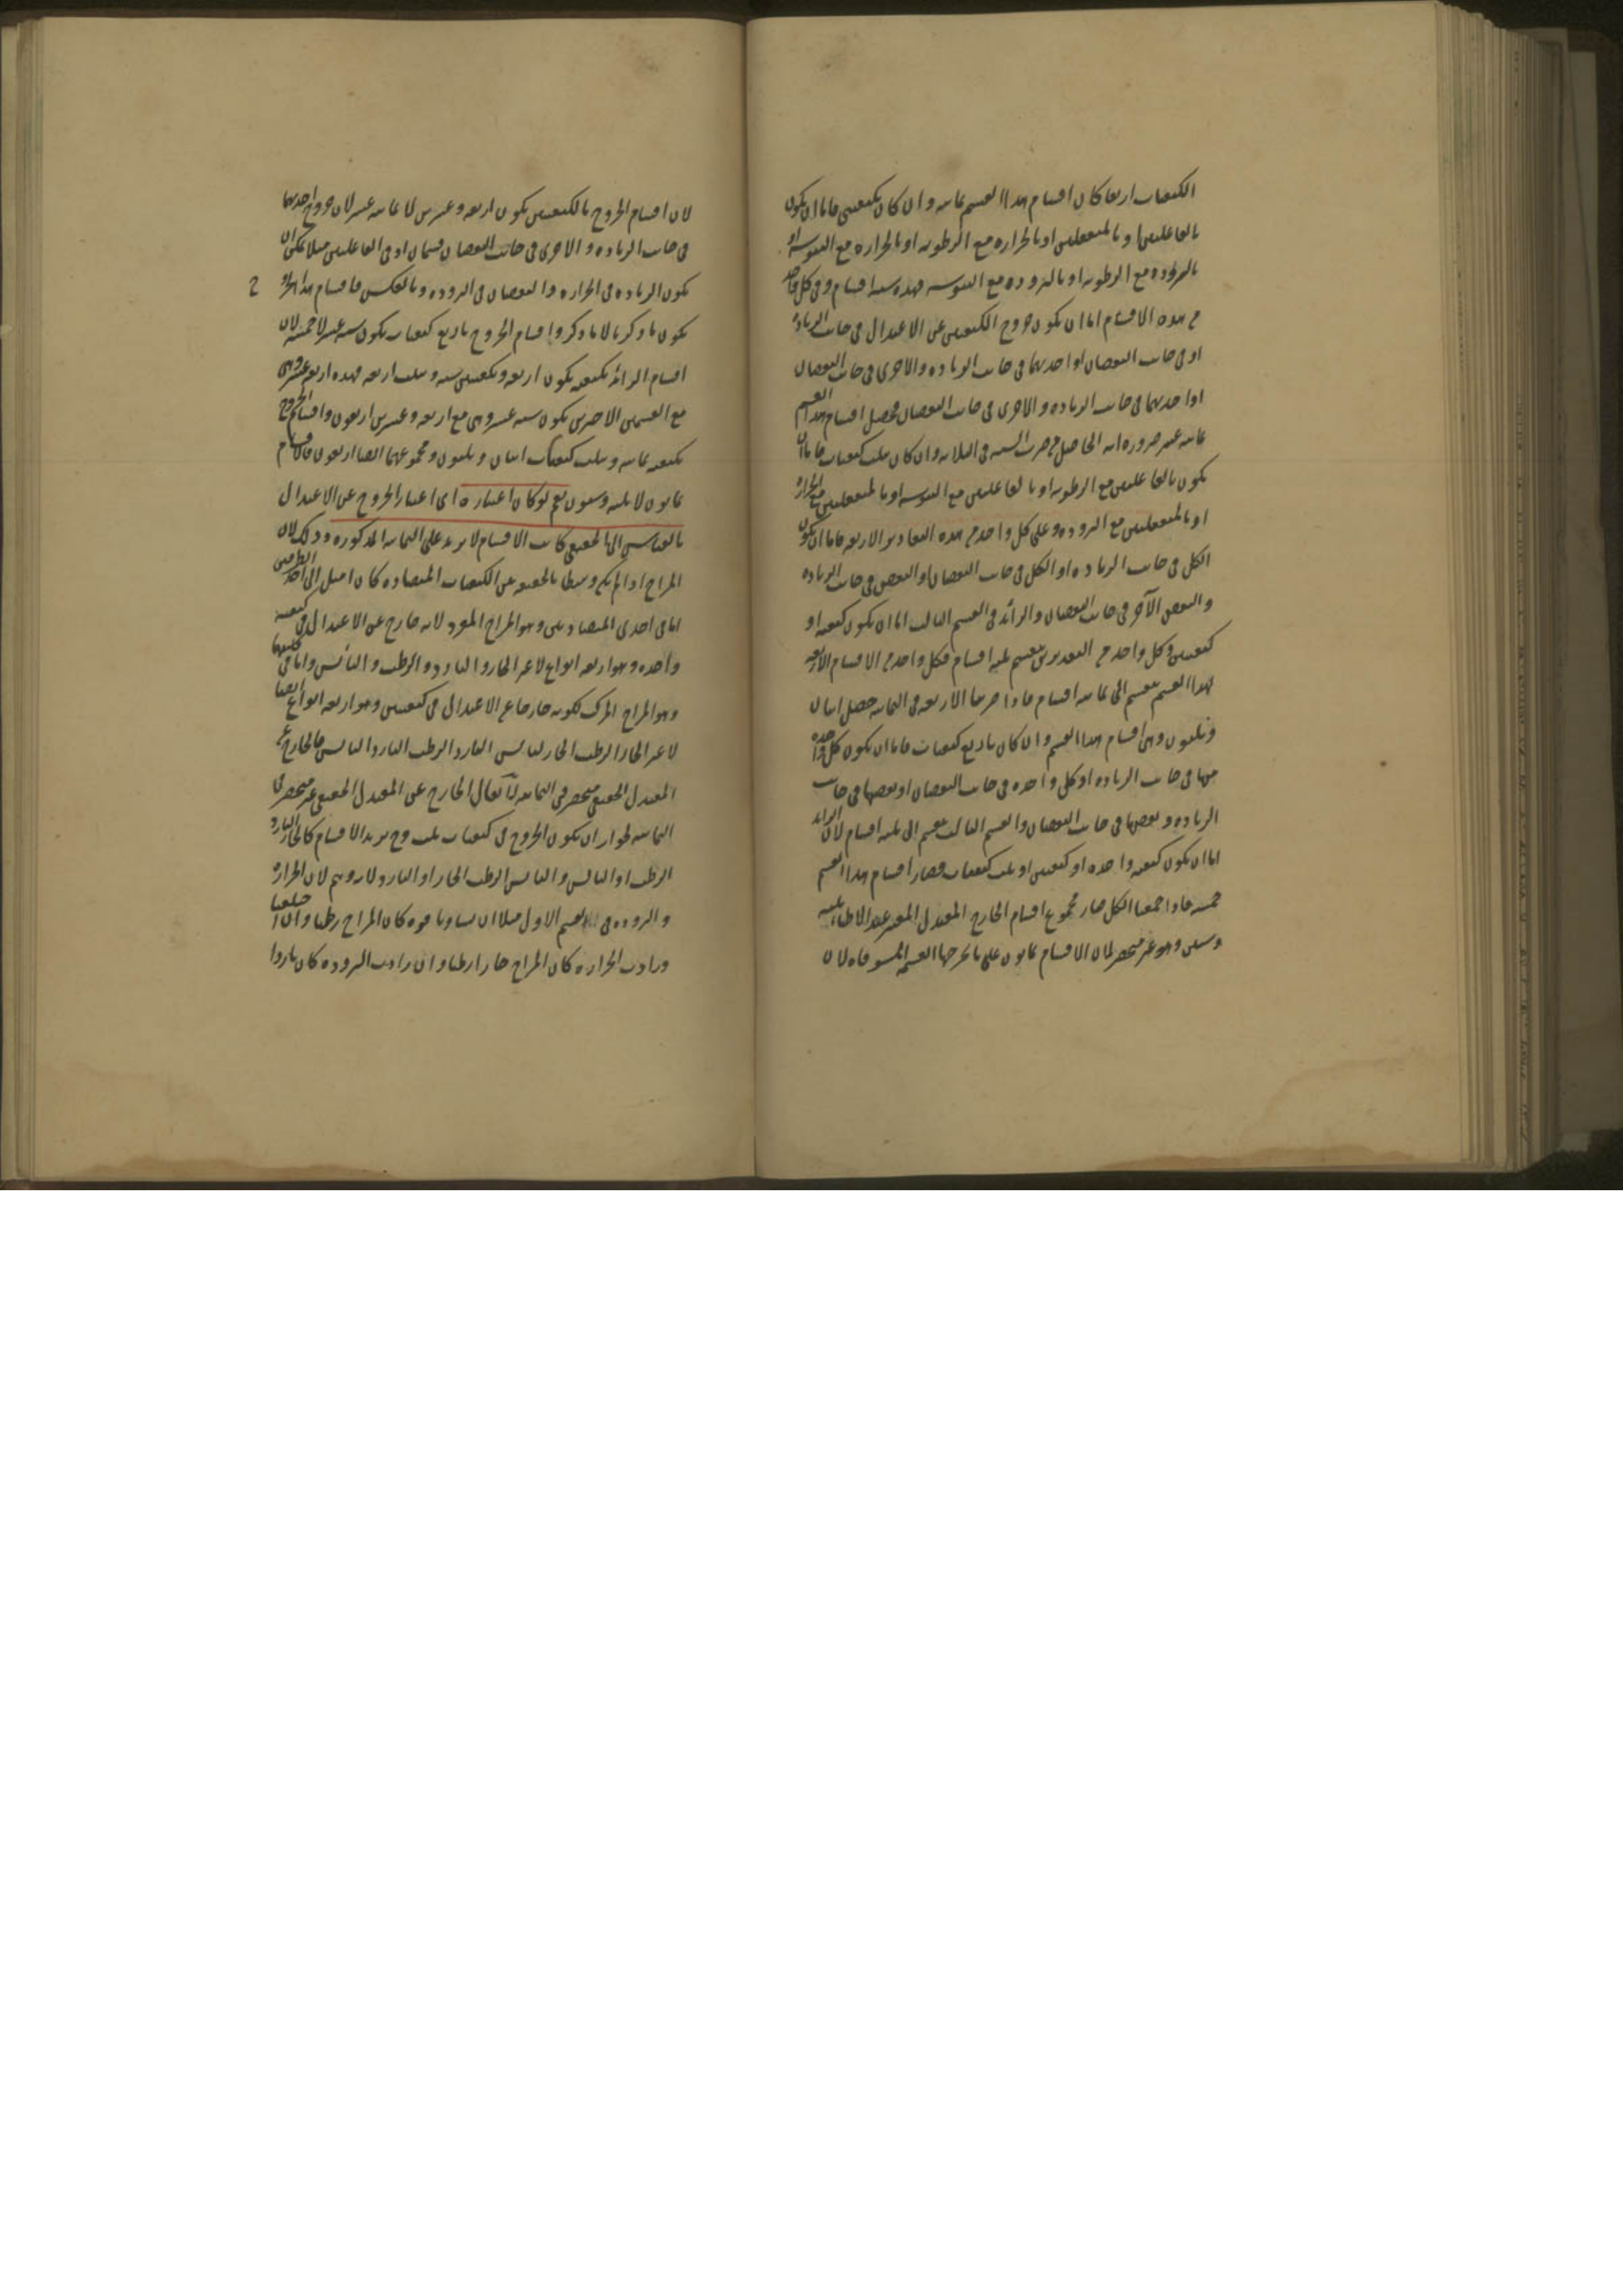 الكيفيات اربعا كان اقسام هذا القسم ثمانيه و ان كان بكيفيتين فاما ان يكون
بالفاعلتين او بالمنفعلتين او بالحراره مع الرطوبه او بالحراره مع اليبوسه او
بالبروده مع الرطوبه او بالبروده مع اليبوسه فهذه سته اقسام و فى كل واحد
من هذه الاقسام اما ان يكون خروج الكيفيتين عن الاعتدال فى جانب الزياده
او فى جانب النقصان او احديهما فى جانب الزياده والاخرى فى جانب النقصان
او احديهما فى جانب الزياده و الاخرى فى جانب النقصان فيحصل اقسام هذا القسم
ثمانيه عشر ضروره انه الحاصل من ضرب السته فى الثلاثه و ان كان بثلث كيفيات فاما ان
يكون بالفاعلتين مع الرطوبه او بالفاعلتين مع اليبوسه او بالمنفعلتين مع الحراره
او بالمنفعلتين مع البروده و على كل واحد من هذه التقادير الاربعه فاما ان يكون
الكل فى جانب الزياده او الكل فى جانب النقصان او البعض فى جانب الزياده
والبعض الآخر فى جانب النقصان والزائد فى القسم الثالث اما ان يكون كيفيه او
كيفيتين و كل واحد من التقديرين ينقسم ثلثه اقسام فكل واحد من الاقسام الاربعه
لهذا القسم ينقسم الى ثمانيه اقسام فاذا ضربنا الاربعه فى الثمانيه حصل اثنان
وثلثون وهى اقسام هذا القسم و ان كان باربع كيفيات فاما ان يكون كل واحده
منها فى جانب الزياده او كل واحده فى جانب النقصان او بعضها فى جانب
الزياده و بعضها فى جانب النقصان والقسم الثالث ينقسم الى ثلثه اقسام لان الزائد
اما ان يكون كيفيه واحده او كيفيتين او ثلث كيفيات فصار اقسام هذا القسم
خمسه فاذا جمعنا الكل صار مجموع اقسام الخارج المعتدل المعتبر عند الاطباء ثلثه
وستين وهو غير منحصر لان الاقسام ثمانون على ما يخرجها القسمه المستوفاه لان
لان اقسام الخروج بالكيفيتين يكون اربعه و عشرين لا ثمانيه عشر لان خروج احديهما
فى جانب الزياده و الاخرى فى جانب النقصان قسمان اذ فى الفاعلتين مثلا يمكن ان
يكون الزياده فى الحراره والنقصان فى البروده و بالعكس فاقسام هذا الخروج
يكون ما ذكرنا لا ما ذكر و اقسام الخروج باربع كيفيات يكون سته عشر لا خمسه لان
اقسام الزائد بكيفيه يكون اربعه و بكيفيتين سته و بثلث اربعه فهذه اربعه عشر وهى
مع القسمين الاخرين يكون سته عشر وهى مع اربعه و عشرين اربعون و اقسام الخروج
بكيفيه ثمانيه و بثلث كيفيات اثنان و ثلثون و مجموعهما ايضا اربعون فالاقسام
ثمانون لا ثلثه و ستون نعم لو كان اعتباره اى اعتبار الخروج عن الاعتدال
بالقياس الى الحقيقى كانت الاقسام لا يزيد على الثمانيه المذكوره و ذلك لان
المزاج اذا لم يكن وسطا بالحقيقه بين الكيفيات المتضاده كان اميل الى احد الطرفين
اما فى احدى المتضادتين و هو المزاج المفرد لانه خارج عن الاعتدال فى كيفيه
واحده وهو اربعه انواع لا غير الحار والبارد و الرطب و اليابس واما فى كليهما
وهو المزاج المركب لكونه خارجا عن الاعتدال فى كيفيتين وهو اربعه انواع ايضا
لا غير الحار الرطب الحار اليابس البارد الرطب البارد اليابس فالخارج عن
المعتدل الحقيقى منحصر فى الثمانيه لا يقال الخارج عن المعتدل الحقيقى غير منحصر فى
الثمانيه لجواز ان يكون الخروج فى كيفيات ثلث و ح يزيد الاقسام كالحار البارد
الرطب او اليابس و اليابس الرطب الحار او البارد لانه وهم لان الحراره
و البروده فى القسم الاول مثلا ان تساويا قوه كان المزاج رطبا و ان اختلفتا
و زادت الحراره كان المزاج حارا رطبا و ان زادت البروده كان باردا